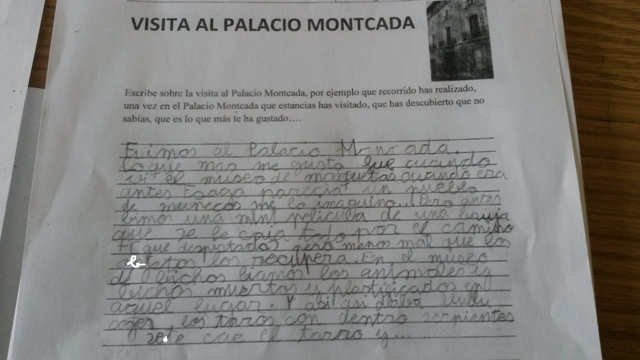 VISITA AL PALACIO MONTCADA
Escribe sobre la visita al Palacio Montcada, por ejemplo que recorrido has realizado,
una vez en el Palacio Montcada que estancias has visitado, que has descubierto que no
sabías, que es lo que más te ha gustado….
Fuimos al Palacio Moncada.
Lo que mas me gusto fue cuando
el museo de maquetas cuando era
antes Fraga parecia un pueblo
de muñecos me lo imagino... Pero antes
bimos una mini pelicula de una bruja
que se le caia todo por el camino
que despistada pero menos mal que los
los recupera. En el museo
de bichos biamos los animales y
bichos muertos y plastificados en
aquel lugar. Y asi asi
coger los taros con dentro serpientes
se le cae el tarro y...